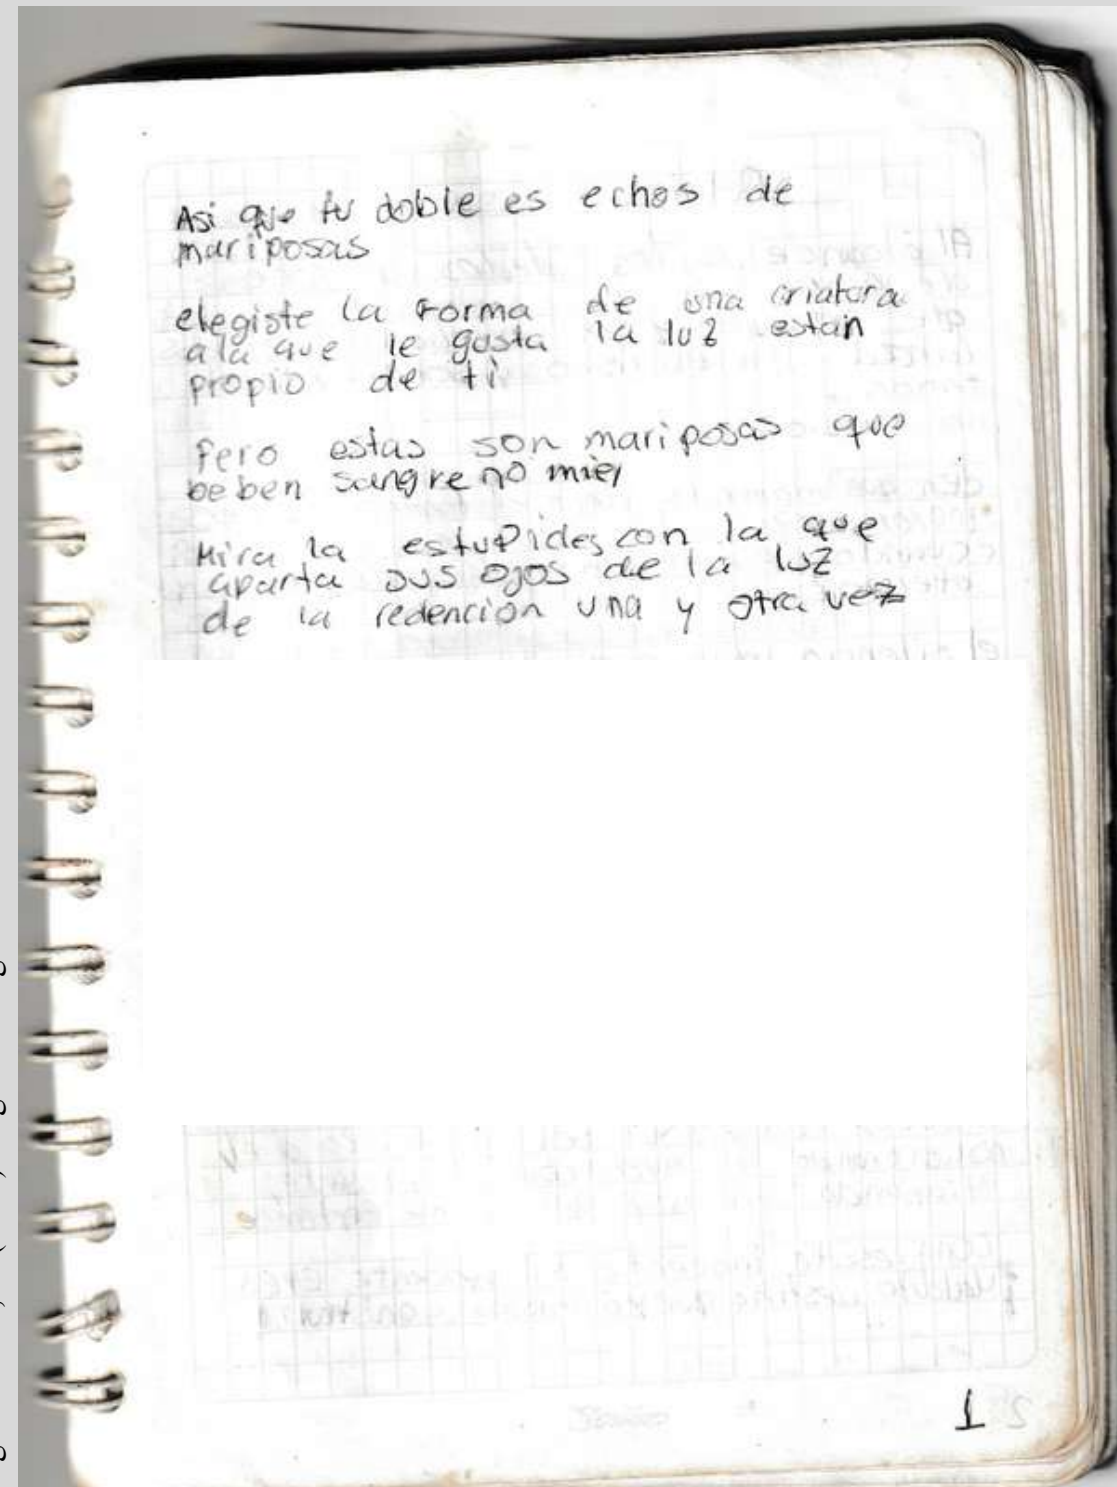 Asi que tu doble es echos de
mariposas
elegiste la forma de una criatura
a la que le gusta la luz estan
propio de ti
Pero estas son mariposas que
beben sangre no miel
Mira la estupides con la que
aparta sus ojos de la luz
de la redención una y otra vez
1